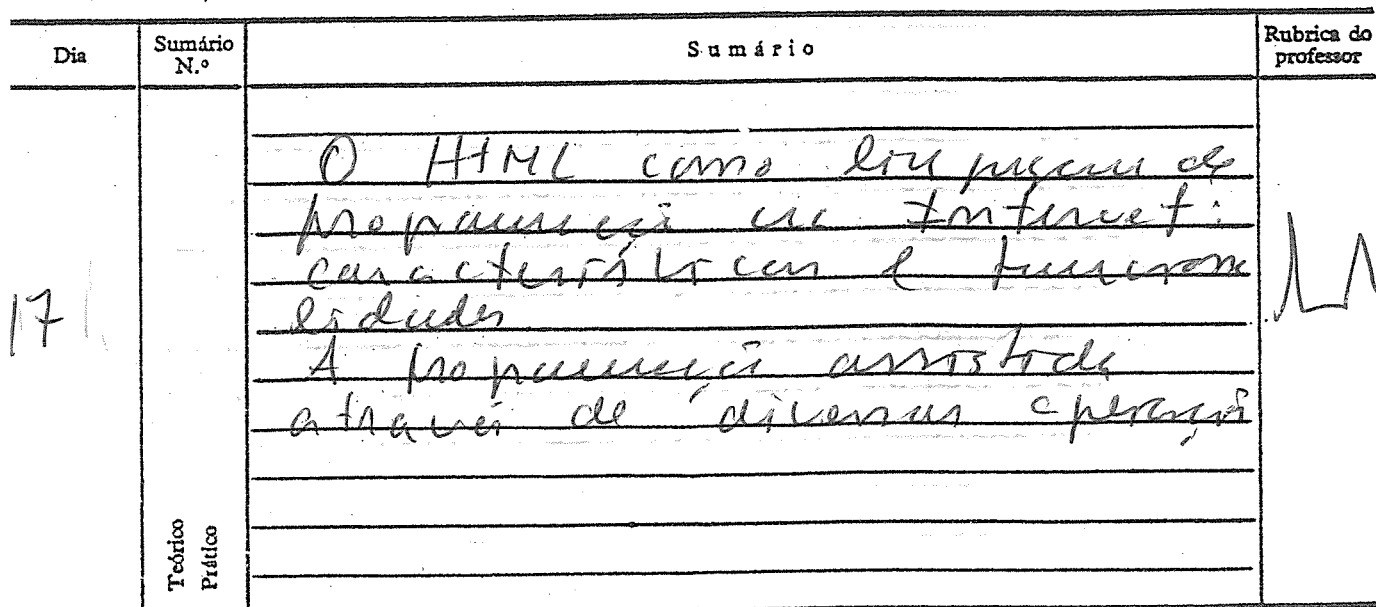 Dia
Sumário N.º
Sumário
Rubrica do professor
17
O HTML como linguagem de
programação na Internet:
características e funciona
lidades
A programação assistida
através de diversas
Teórico
Prático